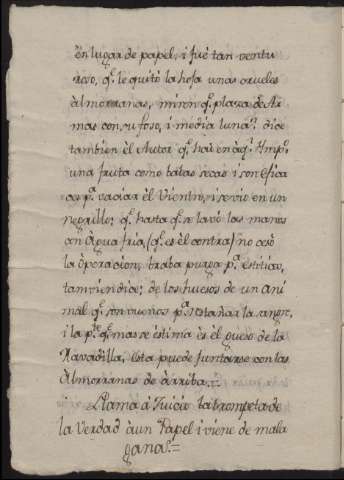 en lugar de papel, i fuè tan ventu
roso, q.e le quitò la hoja unas crueles
àlmorranas, miren q.e plaza de Ar
mas con su foso, i media luna? dice
tambien èl Autor q.e hai en àq.l Imp.o
una fruta como batas secas i son efica
ces p.a vaciar èl Vientre, i se viò en un
negrillo; q.e hasta q.e se lavò las manos
con Àgua fria, (q.e es èl contra) no cesò
la òperacion, braba purga p.a estitico,
tamvien dice; de los huesos de un ani
mal q.e son buenos p.a restañar la sangre,
i la p.te q.e mas se estima ès èl gueso de la
Ravadilla, esta puede juntarse con las
Àlmorranas de àrriba.=
i Llama à Juicio la trompeta de
la Verdad à un Papel i viene de mala
gana.=